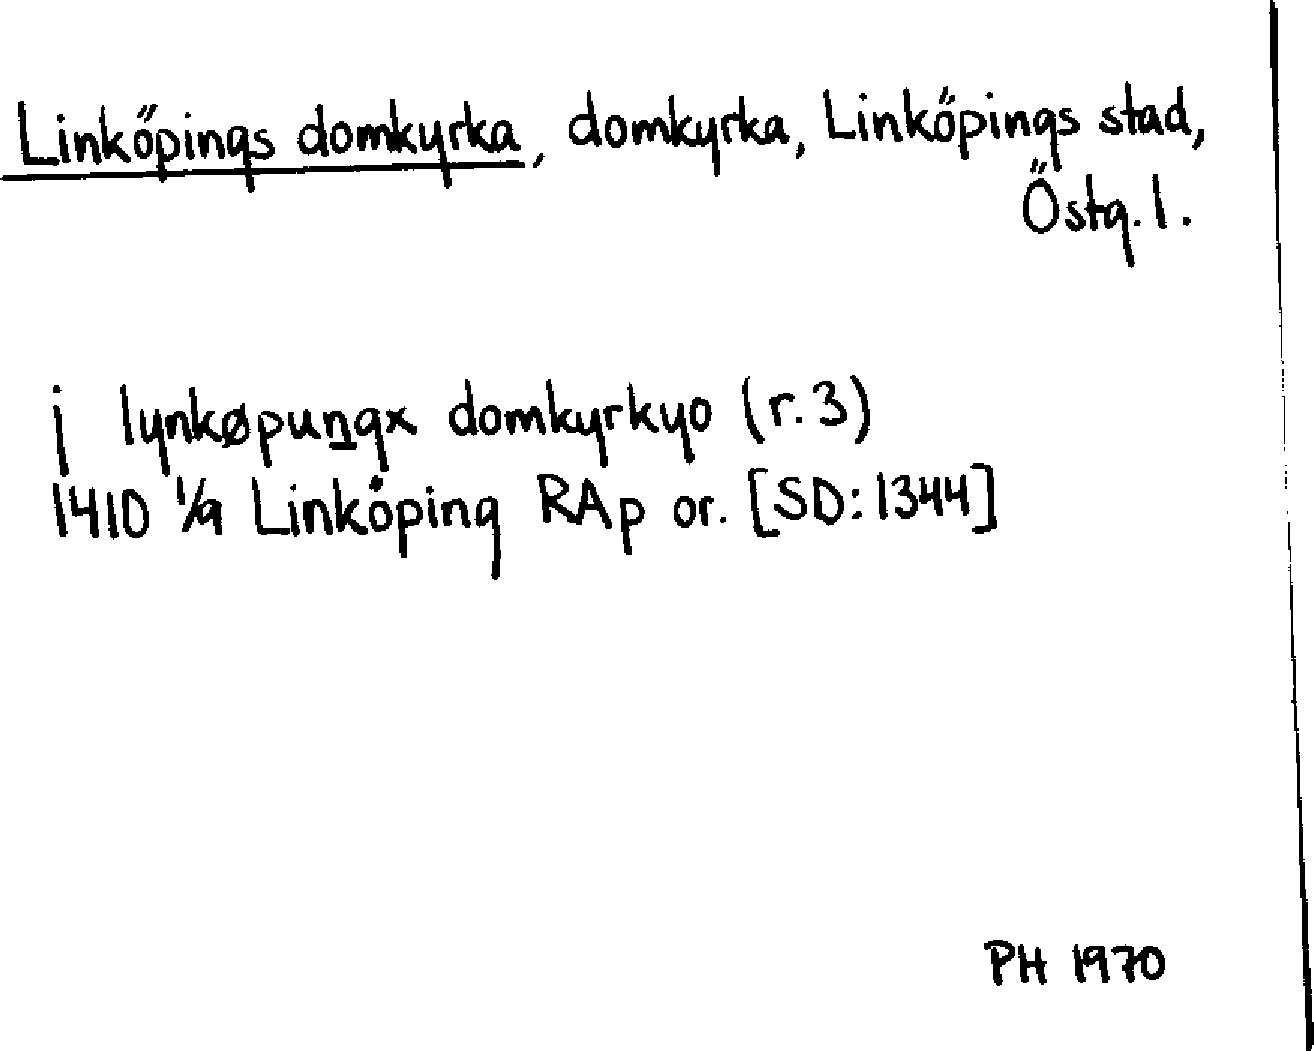 Linköpings domkyrka, domkyrka, Linköpings stad,
Östg. l.
j lynkøpungx domkyrkyo (r. 3)
1410 1/9 Linköping RAp or. [SD: 1344]
PH 1970